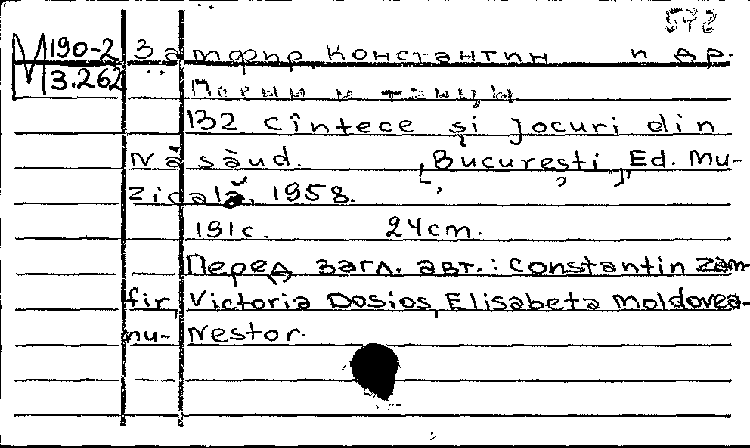 572
М190-2 Замфир, Константин и др.
3.262
Песни и танцы
132 cîntece și jocuri din
Năsăud. [București], Ed. Mu-
zicală, 1958.
191 с. 24 cm.
Перед загл. авт.: Constantin Zam-
fir, Victoria Dosios, Elisabeta Moldovea-
nu-Nestor.